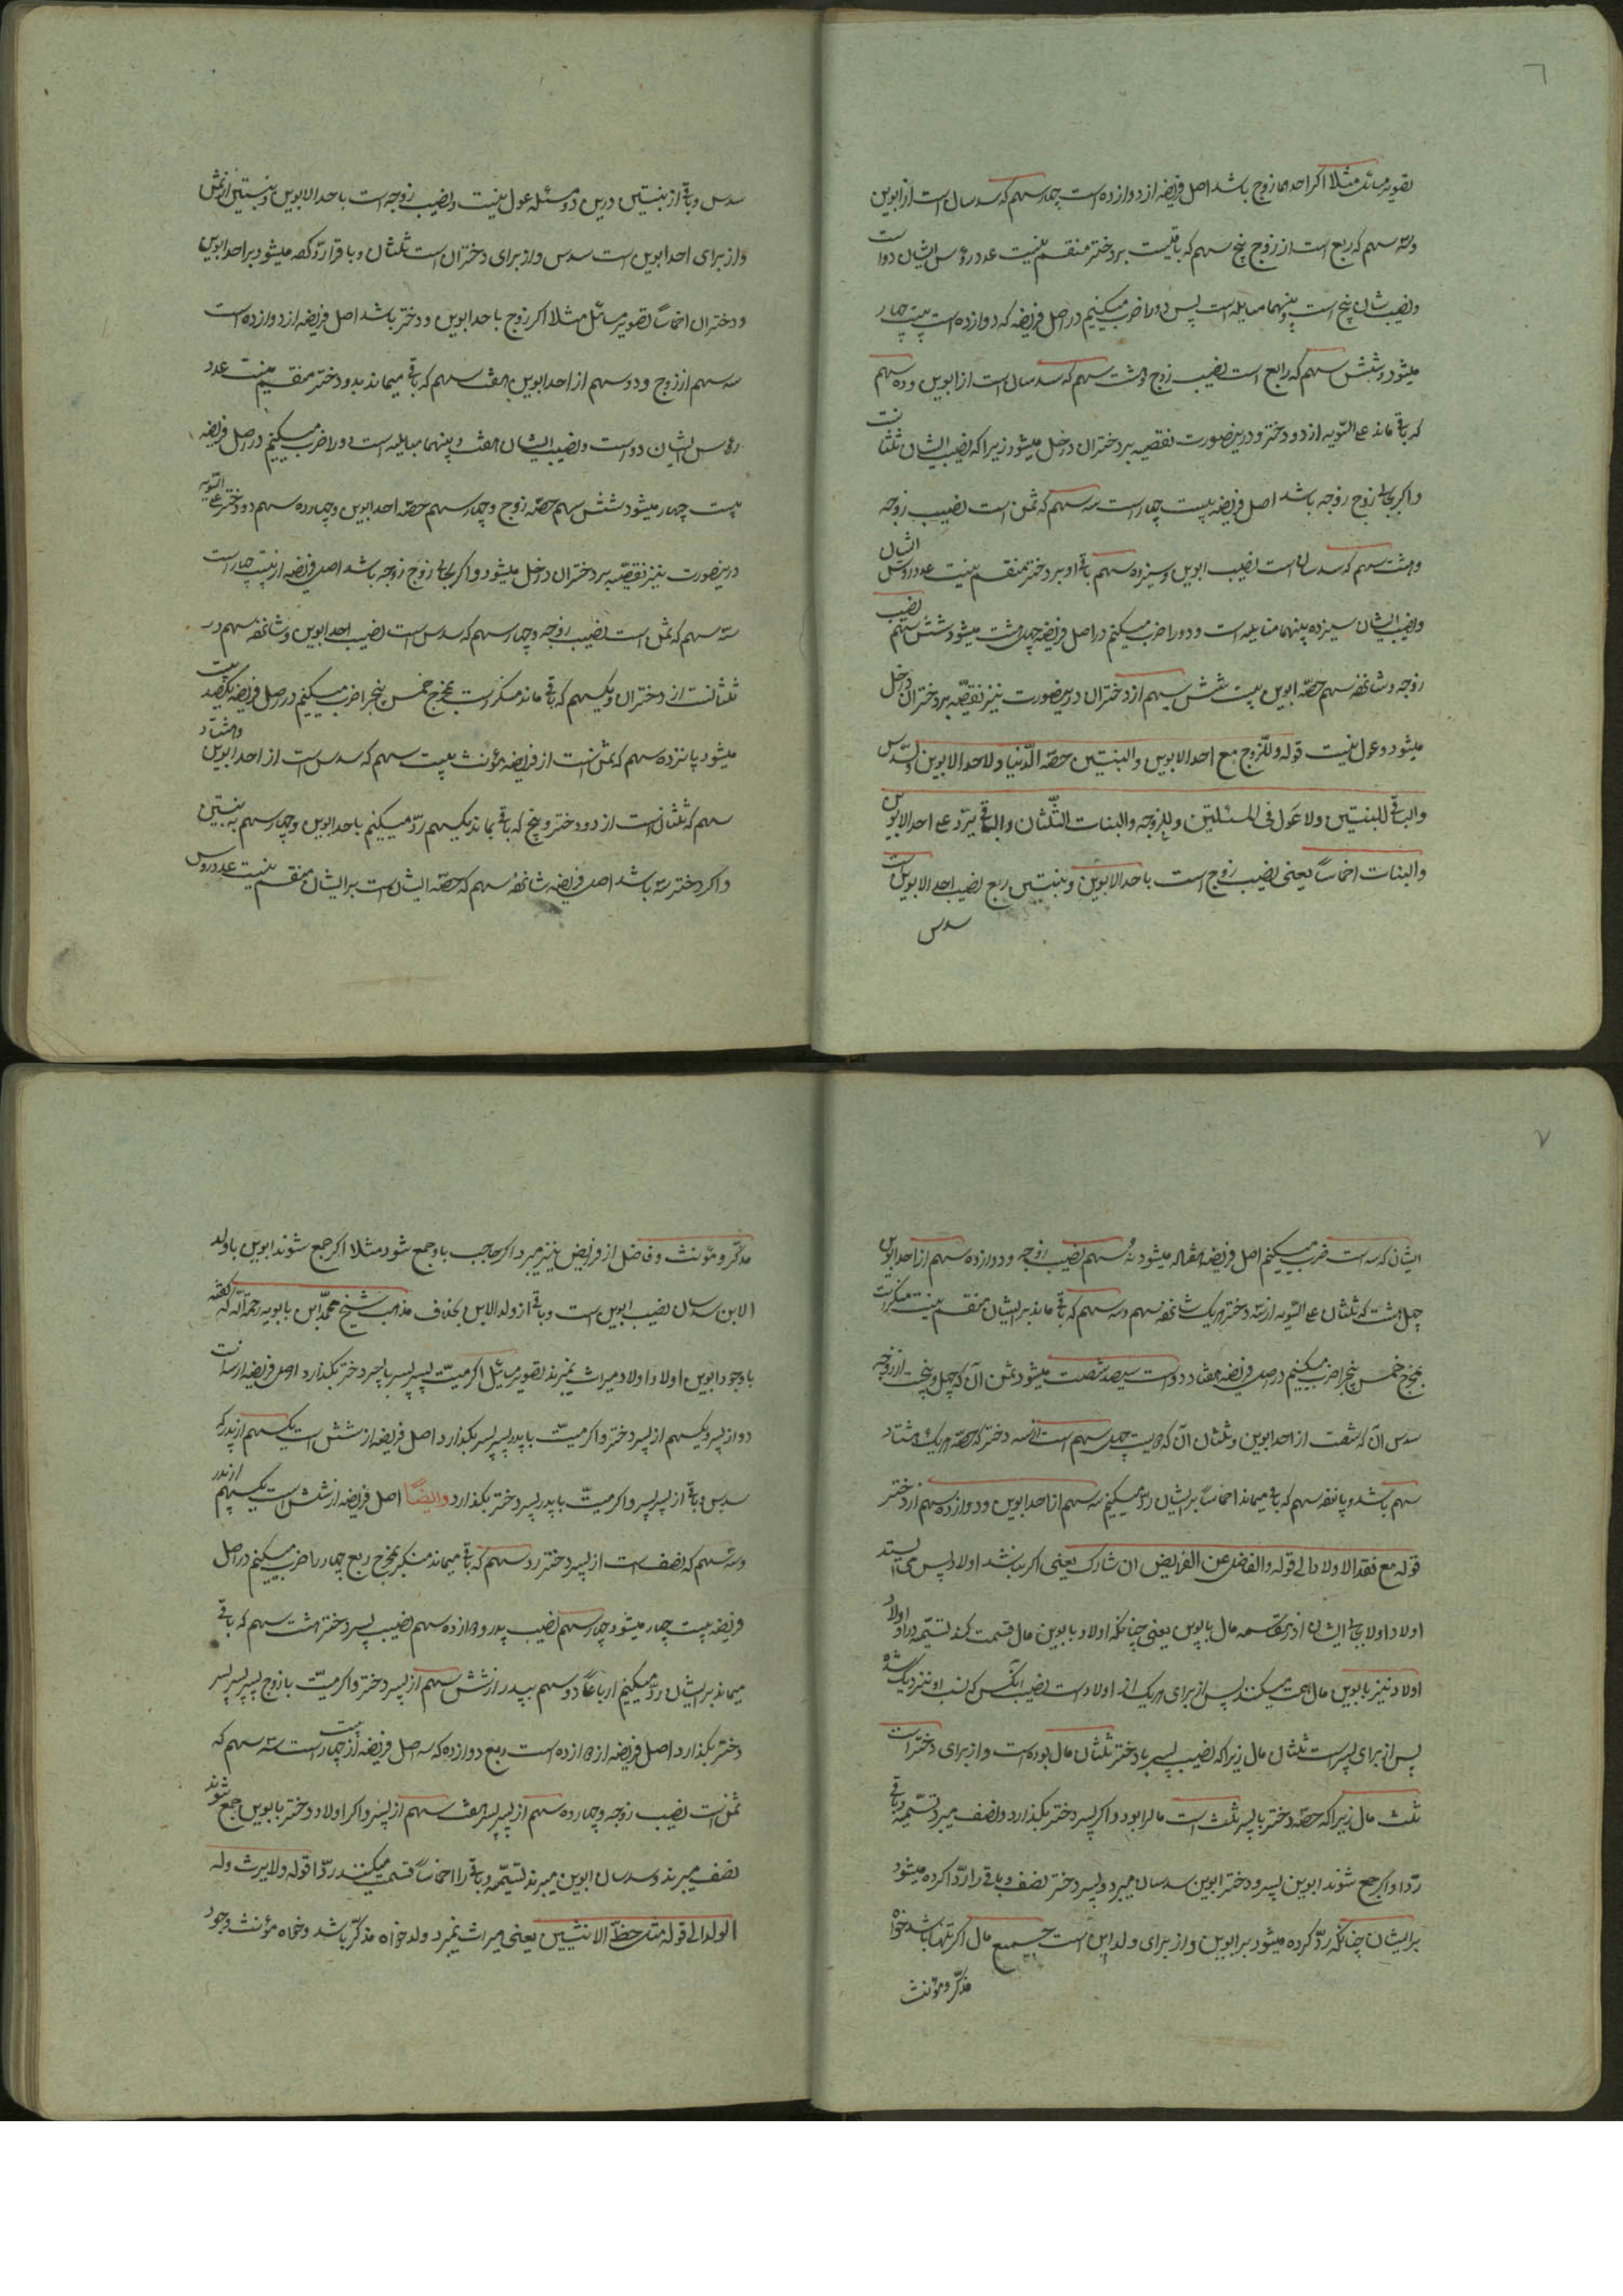 ٦
تصویر مسائل مثلا اکر احدهما زوج باشد اصل فریضه از دوازده است چهار سهم که سدسان است از ابوین
وسه سهم که ربع است از زوج پنج سهم که باقیست بر دختر منقسم نیست عدد رؤس ایشان دو است
ونصیب شان پنج است و بینهما مباینه است پس دو را ضرب میکنیم در اصل فریضه که دوازده است بیست چهار
میشود وشش سهم که رابع است نصیب زوج وهشت سهم که سدسان است از ابوین وده سهم
که باقی ماند علی السّویه از دو دختر ودرینصورت نقصیه بر دختران داخل میشود زیرا که نصیب ایشان ثلثانست
واکر بجای زوج زوجه باشد اصل فریضه بیست چهار است سه سهم که ثمن است نصیب زوجه
وهشت سهم که سدسان است نصیب ابوین وسیزده سهم باقی او بر دختر منقسم نیست عدد رؤس ایشان
ونصیب ایشان سیزده بینهما مباینه است و دو را ضرب میکنیم در اصل فریضه چهل هشت میشود شش سهم نصیب
زوجه وشانزده سهم حصّه ابوین بیست شش سهم از دختران درینصورت نیز نقصیّه بر دختران داخل
میشود وعول نیست قوله وللزّوج مع احد الابوین والبنتین حصّه الدّنیا ولاحد الابوین السّدس
والباقی للبنتین ولا عَول فی المسئلتین وللزوجه والبنات الثّلثان والباقی یردّ علی احد الابوین
والبنات اخماسًا یعنی نصیب زوج است باحد الابوین وبنتین ربع نصیب احد الابوین است
سدس
سدس وباقی از بنتین درین دو مسئله عول نیست ونصیب زوجه است باحد الابوین وبنتین از ثمن
واز برای احد ابوین است سدس واز برای دختران است ثلثان وباقی را ردّ کرده میشود بر احد ابوین
ودختران اخماسًا تصویر مسائل مثلا اکر زوج باحد ابوین و دختر باشد اصل فریضه از دوازده است
سه سهم از زوج ودو سهم از احد ابوین هفت سهم که باقی میماند بدو دختر منقسم نیست عدد
رؤس ایشان دو است ونصیب ایشان هفت و بینهما مباینه است دو را ضرب میکنیم در اصل فریضه
بیست چهار میشود شش سهم حصّه زوج و چهار سهم حصّه احد ابوین وچهارده سهم دو دختر علی السّویه
درینصورت نیز نقصیّه بر دختران داخل میشود واکر بجای زوج زوجه باشد اصل فریضه از بیست چهار است
سه سهم که ثمن است نصیب زوجه وچهار سهم که سدس است نصیب احد ابوین وشانزده سهم در
ثلثانست از دختران ویکسهم که باقی ماند منکسر است بمخرج خمس پنج را ضرب میکنیم در اصل فریضه یکصد بیست
میشود پانزده سهم که ثمن است از فریضه مؤنث بیست سهم که سدس است از احد ابوین وهشتاد
سهم که ثلثان است از دو دختر وپنج که باقی بماند یکسهم ردّ میکنیم باحد ابوین وچهار سهم به بنتین
واکر دختر سه باشد اصل فریضه شانزده سهم که حصّه ایشان است بر ایشان منقسم نیست عدد رؤس
٧
ایشان که سه است ضرب میکنیم اصل فریضه هفتاد میشود نه سهم نصیب زوجه ودوازده سهم از احد ابوین
چهل هشت که ثلثان علی السّویه از سه دختر هریک شانزده سهم وسه سهم که باقی ماند بر ایشان منقسم نیست منکسر است
بمخرج خمس پنج را ضرب میکنیم در اصل فریضه هفتاد دو است سیصد شصت میشود ثمن آن که چهل وپنجست از زوجه
سدس آن که شصت از احد ابوین وثلثان آن که دویست چهل سهم است از سه دختر که حصّه هریک هشتاد
سهم باشد وپانزده سهم که باقی میماند اخماسًا بر ایشان ردّ میکنیم سه سهم از احد ابوین ودوازده سهم از دختر
قوله مع فقد الاولاد الی قوله والفاضل عن الفرایض ان شارک یعنی اکر نباشد اولاد پس می ایستد
اولاد اولاد بجای ایشان در مقاسمه مال بابوین یعنی چنانکه اولاد بابوین مال قسمت کند تسمّه در اولاد
اولاد نیز بابوین مال قسمت میکنند پس از برای هریک از اولاد است نصیب آنکس که نسب او نزدیک شده
پس از برای پسر است ثلثان مال زیرا که نصیب پسر با دختر ثلثان مال بوده است واز برای دختر است
ثلث مال زیرا که حصّه دختر با پسر ثلث است مالرا بود واکر پسر دختر بکذارد ونصف میبرد تسمّیه وباقی
ردّا واکر جمع شوند ابوین پسر ودختر ابوین سدسان میبرد وپسر دختر نصف وباقی را ردّا کرده میشود
بر ایشان چنانکه ردّ کرده میشود بر ابوین واز برای ولد ابن است جمیع مال اکر تنها باشد خواه
مذکّر ومؤنث
مذکّر ومؤنث وفاضل از فرایض نیز میبرد اکر حاجب باو جمع شود مثلا اکر جمع شوند ابوین باولد
الابن سدسان نصیب ابوین است وباقی از ولد الابن بخلاف مذهب شیخ محمّد ابن بابویه رحمة الله که کفته
با وجود ابوین اولاد اولاد میراث نمیبرند تصویر مسائل اکر میّت پسر پسر با پسر دختر بکذارد اصل فریضه از سه است
دو از پسر ویکسهم از پسر دختر واکر میّت با پدر پسر پسر بکذارد اصل فریضه از شش است یکسهم از پدر که
سدس وباقی از پسر پسر واکر میّت با پدر پسر دختر بکذارد وایضًا اصل فریضه از شش است یکسهم از پدر
وسه سهم که نصف است از پسر دختر ردو سهم که باقی میماند منکسر بمخرج ربع چهار را ضرب میکنیم در اصل
فریضه بیست چهار میشود چهار سهم نصیب پدر ودوازده سهم نصیب پسر دختر هشت سهم که باقی
میماند بر ایشان ردّ میکنیم ارباعًا دو سهم بپدر از شش سهم از پسر دختر واکر میّت با زوج پسر پسر پسر
دختر بکذارد اصل فریضه از دوازده است ربع دوازده که سه اصل فریضه از بیست چهار است سه سهم که
ثمن است نصیب زوجه وچهارده سهم از پسر پسر هفت سهم از پسر واکر اولاد دختر بابوین جمع شوند
نصف میبرند وسدسان ابوین میبرند تسمّیه وباقی را اخماسًا قسمت میکنند ردّا قوله ولایرث وله
الولد الی قوله مثل حظّ الانثیین یعنی میراث نمیبرد ولد خواه مذکّر باشد وخواه مؤنث وجود